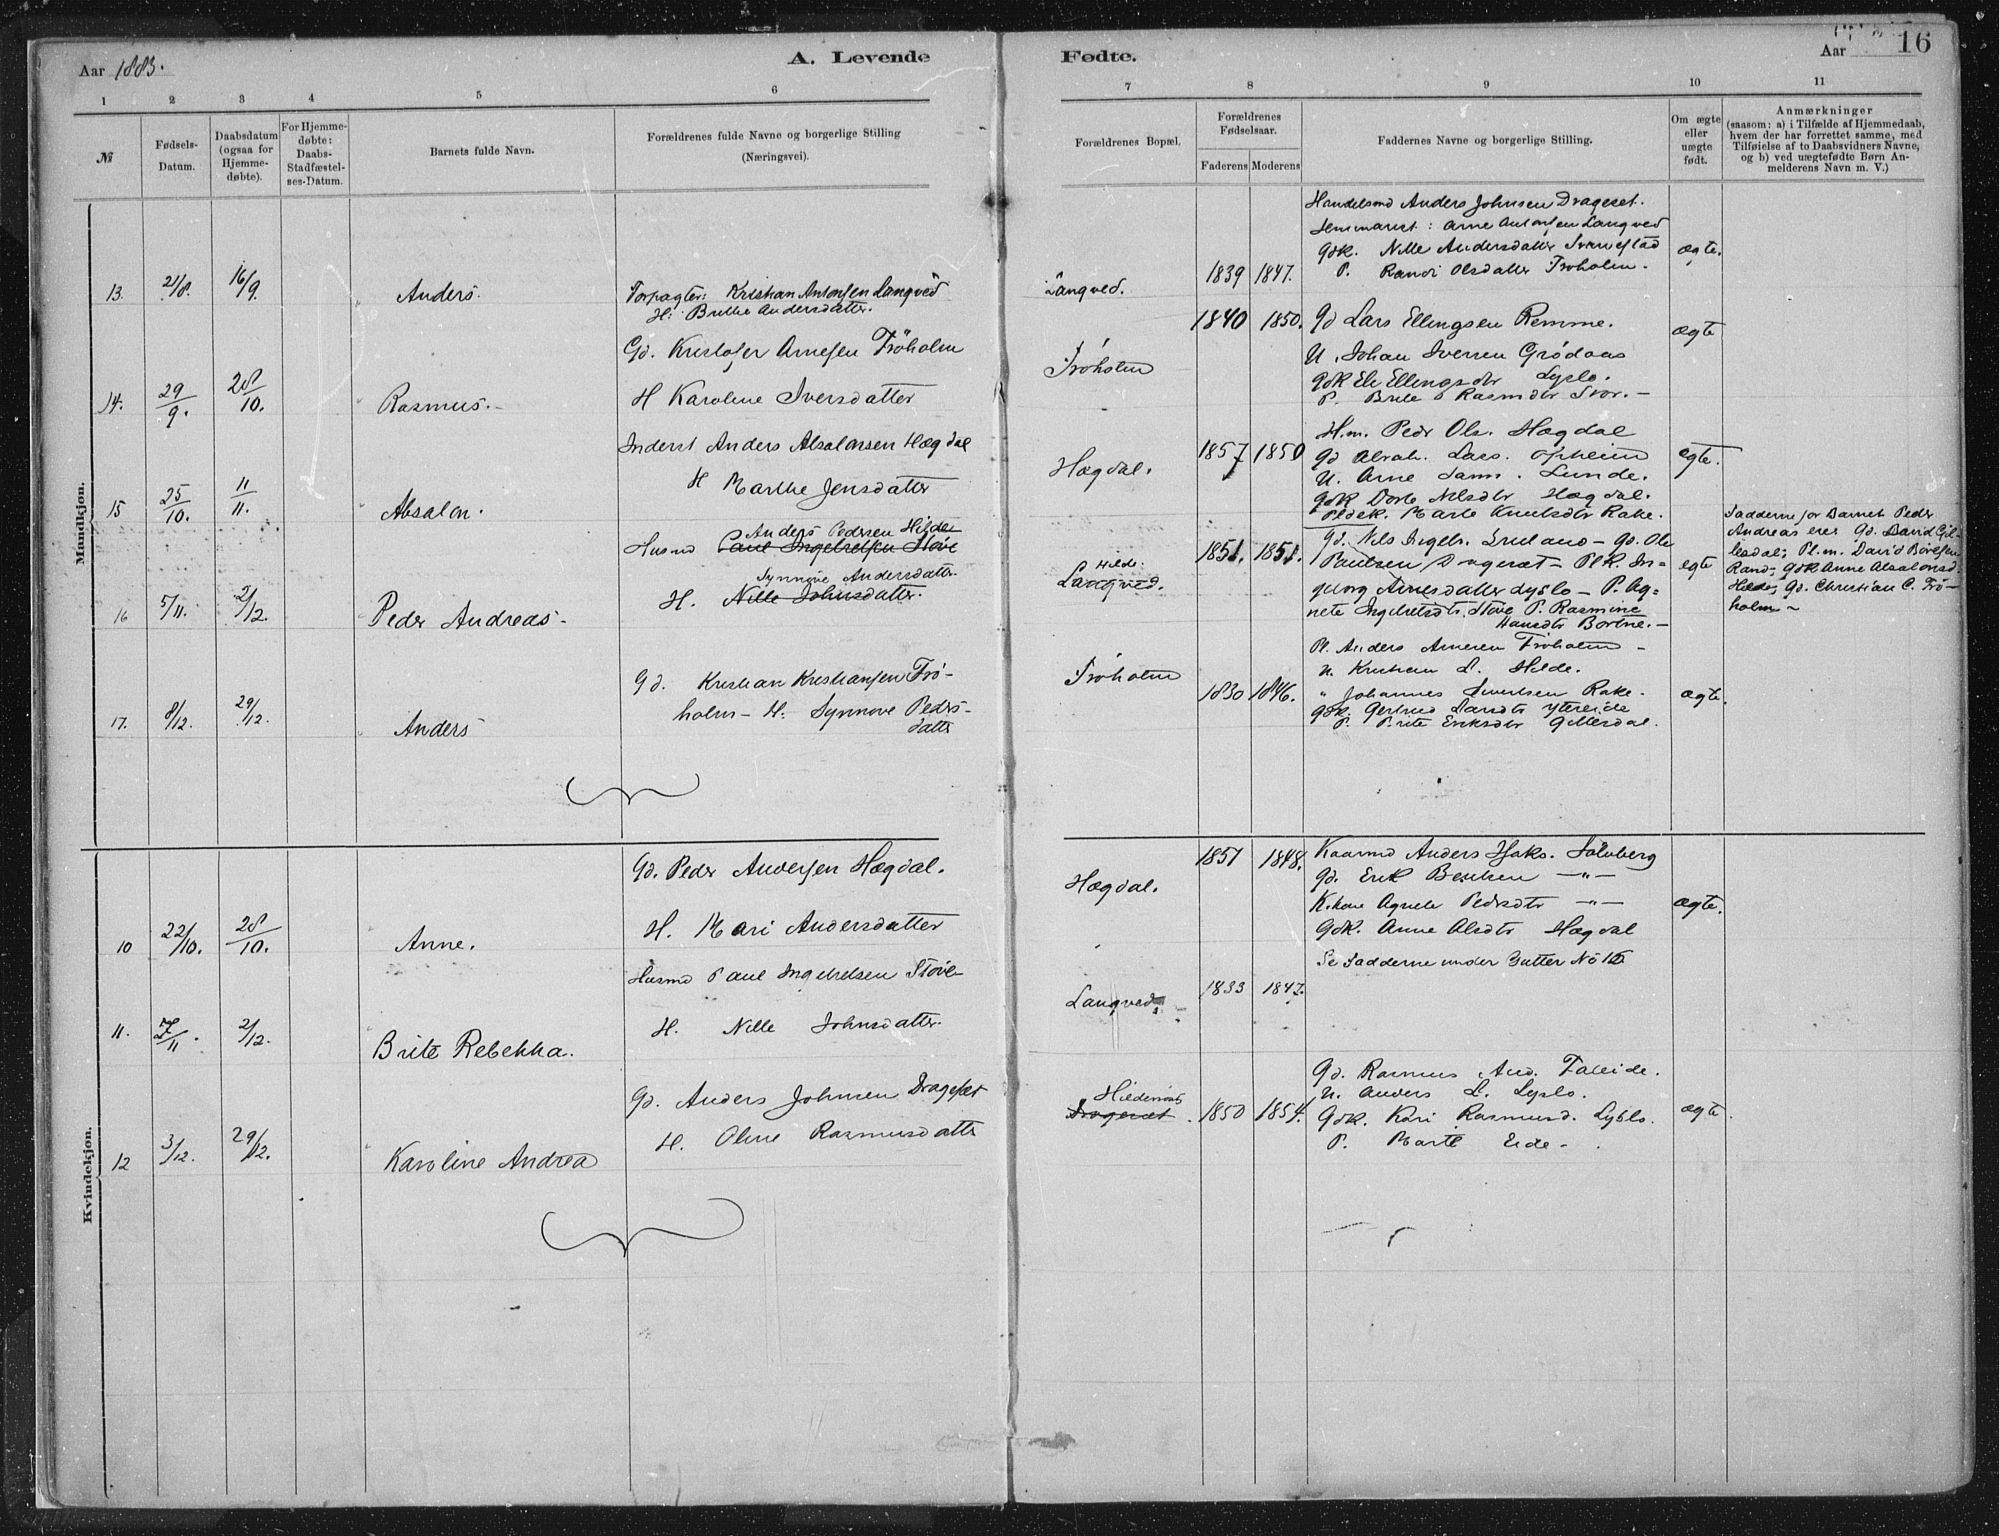 Aar 1883.
A. Levende
Fødte.
Aar
16
1 2 3 4 5 6
7 8 9 10 11
№
Fødsels-
Datum.
Daabsdatum
(ogsaa for
Hjemme-
døbte).
For Hjemme-
døbte:
Daabs-
Stadfæstel-
ses-Datum.
Barnets fulde Navn.
Forældrenes fulde Navne og borgerlige Stilling
(Næringsvei).
Forældrenes Bopæl.
Forældrenes
Fødselsaar.
Faderens Moderens
Faddernes Navne og borgerlige Stilling.
Om ægte
eller
uægte
født.
Anmærkninger
(saasom: a) i Tilfælde af Hjemmedaab,
hvem der har forrettet samme, med
Tilføielse af to Daabsvidners Navne,
og b) ved uægtefødte Børn An-
melderens Navn m. V.)
Mandkjøn.
13. 21/8. 16/9. Anders.
Forpagter: Kristian Antonsen Langved
H: Brithe Andersdatter.
Langved.
1839 1847.
Handelsmd Anders Johnsen Drageset.
Seminarist: Arne Antonsen Langved
Gdk. Nille Andersdatter
P. Randi Olsdatter Frøholm.
ægte.
14. 29/9. 28/10. Rasmus.
Gd. Kristofer Arnesen Frøholm
H Karoline Iversdatter
Frøholm
1840 1850.
Gd Lars Ellingsen Remme.
U. Johan Iversen Grødaas
Gdk Eli Ellingsdtr Lyslo.
P. Brite Rasmdtr Stor.
ægte
15 25/10. 11/11. Absalon.
Inderst Anders Absalonsen Hægdal
H Marthe Jensdatter
Hægdal.
1857 1850
H.m. Pedr Ols. Hægdal
Gd Abrah. Lars. Opheim
U. Arne Sams. Lunde.
Gdk Dorte Nilsdtr Hægdal.
Marte Knutsdtr Rake.
ægte.
16 5/11. 2/12. Peder Andreas
Anders Pedersen Hilde
Husmd Paul Ingebretsen Støve
Synnøve Andersdatter
H. Nille Johnsdatter.
Hilde.
Langved.
1851. 1851.
Gd. Nils Ingebr. – Gd. Ole
Paulsen Drageset – Plk. In-
geborg Arnesdatter Lyslo – P. Ag-
nete Ingebretsdtr. Støve P. Rasmine
Hansdtr Bortne.
ægte
Fadderne for Barnet Peder
Andreas erer Gd. David Gil-
lesdal; Pl.m. David Børesen
Rand; Gdk Anne Absalonsd.
Hilde; Gd. Christian C. Frø-
holm
17. 8/12. 29/12. Anders
Gd. Kristian Kristiansen Frø-
holm – H: Synnøve Peders-
datter
Frøholm
1830 1846.
Pl. Anders Arnesen Frøholm
U. Kristian L. Hilde.
" Johannes Sivertsen Rake.
Gdk. Gertrud Larsdtr Ytreeide
P. Brite Eriksdtr Gillesdal.
ægte.
Kvindekjøn.
10 22/10. 28/10. Anne.
Gd. Peder Andersen Hægdal.
H. Mari Andersdatter
Hægdal.
1851 1848.
Kaarmd Anders Isaks. Sølvberg
Gd. Erik Bentsen –"–
K.kone Agnete Pedrsdtr –"–
Gdk. Anne Alsdtr Hægdal
ægte.
11. 7/11. 2/12. Brite Rebekka.
Husmd Paul Ingebretsen Støve
H. Nille Johnsdatter.
Langved
1833 1847.
Se Fadderne under Gutter No 16
12 3/12. 29/12. Karoline Andrea
Gd. Anders Johnsen Drageset
H. Oline Rasmusdatter
Hildenæs
Drageset.
1850 1854.
Gd. Rasmus And. Faleide.
U. Anders L. Lyslo.
Gdk. Kari Rasmusd. Lyslo.
P. Marte Eide
ægte.